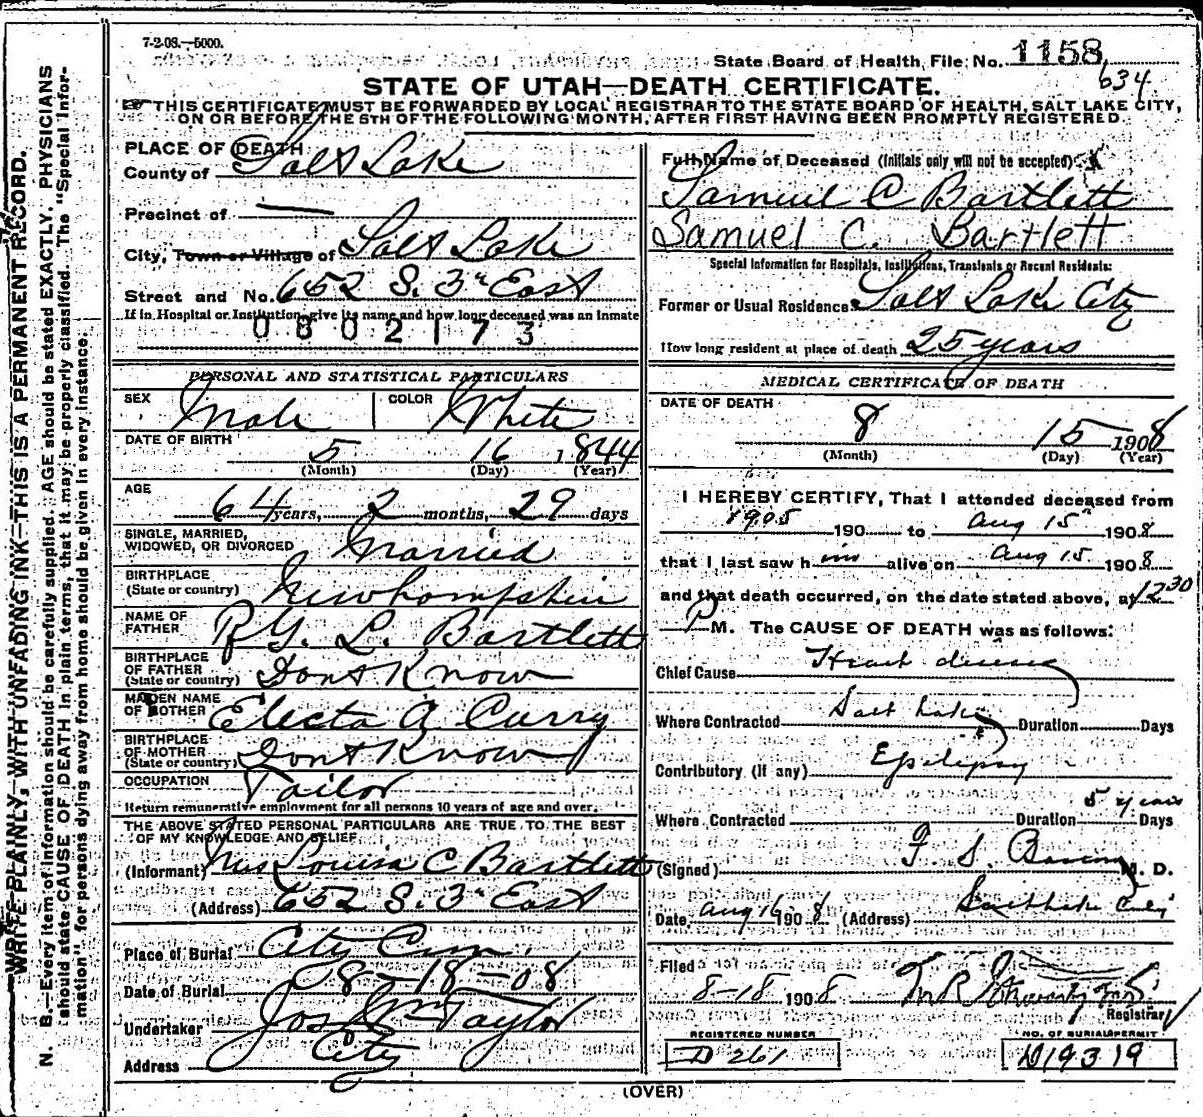 7-2-08.—5000.
State Board of Health, File No. 1158
634
STATE OF UTAH—DEATH CERTIFICATE.
THIS CERTIFICATE MUST BE FORWARDED BY LOCAL REGISTRAR TO THE STATE BOARD OF HEALTH, SALT LAKE CITY,
ON OR BEFORE THE 5TH OF THE FOLLOWING MONTH, AFTER FIRST HAVING BEEN PROMPTLY REGISTERED.
WRITE PLAINLY, WITH UNFADING INK—THIS IS A PERMANENT RECORD.
N. B.—Every item of information should be carefully supplied. AGE should be stated EXACTLY. PHYSICIANS
should state CAUSE OF DEATH in plain terms, that it may be properly classified. The "Special Infor-
mation" for persons dying away from home should be given in every instance.
PLACE OF DEATH
County of Salt Lake
Precinct of —
City, Town or Village of Salt Lake
Street and No. 652 S. 3rd East
If in Hospital or Institution, give its name and how long deceased was an inmate
0802173
PERSONAL AND STATISTICAL PARTICULARS
SEX Male COLOR White
DATE OF BIRTH 5 16 1844
(Month) (Day) (Year)
AGE 64 years, 2 months, 29 days
SINGLE, MARRIED,
WIDOWED, OR DIVORCED Married
BIRTHPLACE
(State or country) Newhampshire
NAME OF
FATHER L. Bartlett
BIRTHPLACE
OF FATHER
(State or country) Dont Know
MAIDEN NAME
OF MOTHER Electa A Curry
BIRTHPLACE
OF MOTHER
(State or country) Dont Know
OCCUPATION Tailor
Return remunerative employment for all persons 10 years of age and over.
THE ABOVE STATED PERSONAL PARTICULARS ARE TRUE TO THE BEST
OF MY KNOWLEDGE AND BELIEF
(Informant) Mrs Louisa C Bartlett
(Address) 652 S. 3rd East
Place of Burial City Cem
Date of Burial 8-18-08
Undertaker Jos Wm Taylor
Address City
Full Name of Deceased (Initials only will not be accepted)
Samuel C Bartlett
Samuel C. Bartlett
Special Information for Hospitals, Institutions, Transients or Recent Residents:
Former or Usual Residence Salt Lake City
How long resident at place of death 25 years
MEDICAL CERTIFICATE OF DEATH
DATE OF DEATH
8 15 1908
(Month) (Day) (Year)
I HEREBY CERTIFY, That I attended deceased from
1905 190 to Aug 15" 1908
that I last saw him alive on Aug 15 1908
and that death occurred, on the date stated above, at 12 30
P M. The CAUSE OF DEATH was as follows:
Chief Cause Heart disease
Where Contracted Salt Lake Duration Days
Contributory (If any) Epilepsy
5 years
Where Contracted Duration Days
(Signed) F S. M. D.
Date Aug 16 1908 (Address) Salt Lake City
Filed
8-18 1908
Registrar
REGISTERED NUMBER
D 261
NO. OF BURIAL PERMIT
D19319
(OVER)